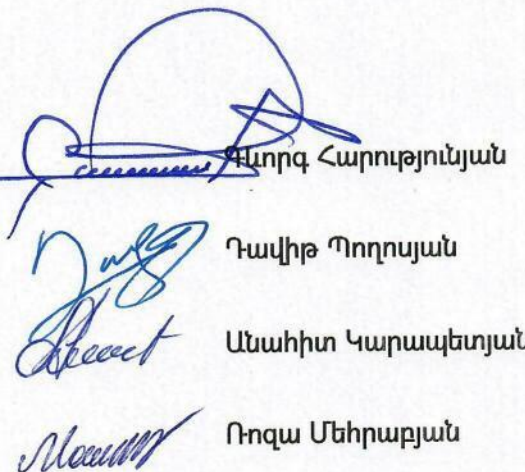 Գևորգ Հարությունյան
Դավիթ Պողոսյան
Անահիտ Կարապետյան
Ռոզա Մեհրաբյան